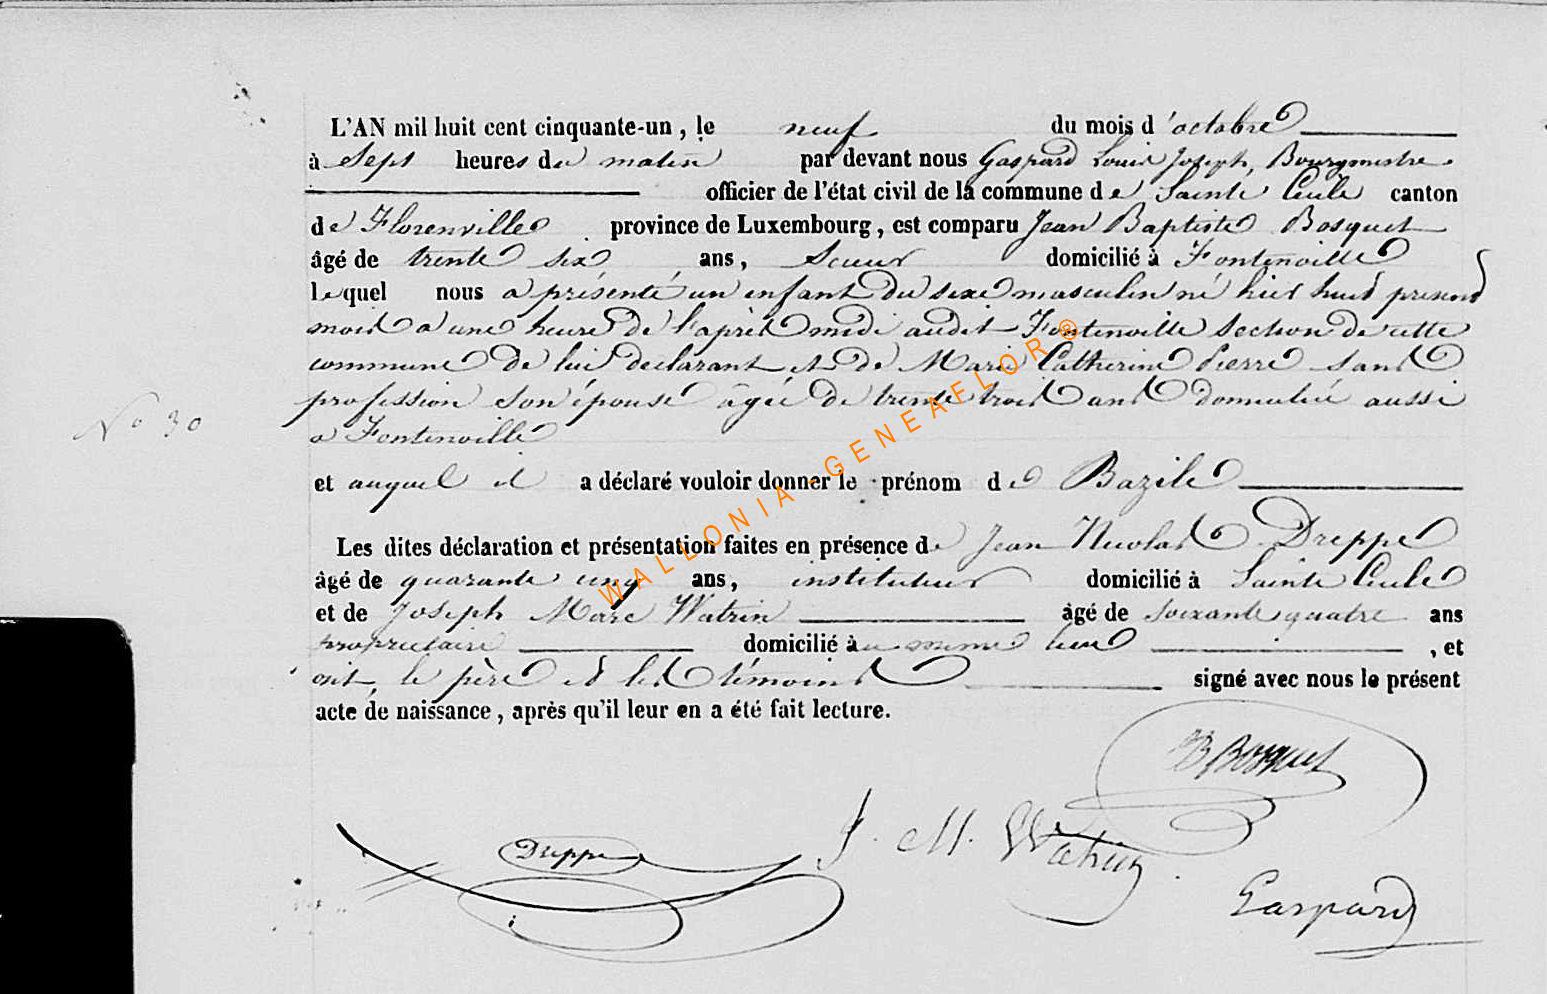 L'AN mil huit cent cinquante-un, le neuf du mois d'octobre
à sept heures du matin par devant nous Gaspard Louis Joseph, Bourgmestre
officier de l'état civil de la commune de Sainte Cecile canton
de Florenville province de Luxembourg, est comparu Jean Baptiste Bosquet
âgé de trente six ans, Scieur domicilié à Fontenoille
lequel nous a présenté un enfant du sexe masculin né hier huit présent
mois a une heure de l'après midi audit Fontenoille section de cette
commune de lui déclarant et de Marie Catherine Pierre sans
profession son épouse âgée de trente trois ans domiciliée aussi
a Fontenoille
N° 30
et auquel il a déclaré vouloir donner le prénom de Bazile
Les dites déclaration et présentation faites en présence de Jean Nicolas Dreppe
âgé de quarante cinq ans, instituteur domicilié à Sainte Cecile
et de Joseph Marc Watrin âgé de soixante quatre ans
propriétaire domicilié au meme lieu , et
ont le père et les témoins signé avec nous le présent
acte de naissance, après qu'il leur en a été fait lecture.
JB Bosquet
Dreppe J. M. Watrin
Gaspard
WALLONIA-GENEAFLOR®